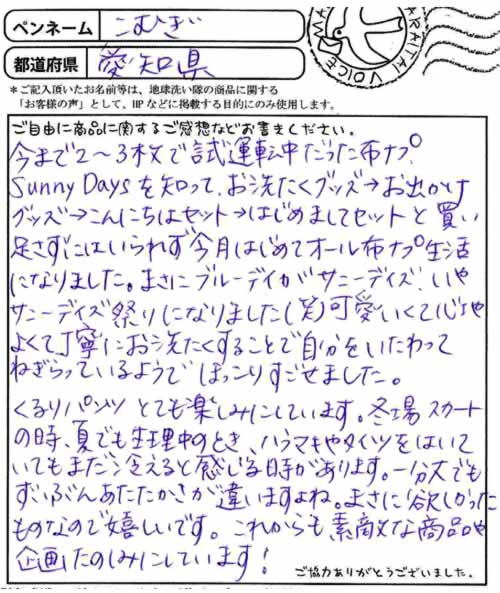 ペンネーム こむぎ
都道府県 愛知県
ARAITAI VOICE
*ご記入頂いたお名前等は、地球洗い隊の商品に関する
「お客様の声」として、HPなどに掲載する目的にのみ使用します。
ご自由に商品に関するご感想などお書きください。
今まで2〜3枚で試運転中だった布ナプ。
Sunny Daysを知って、お洗たくグッズ→お出かけ
グッズ→こんにちはセット→はじめましてセットと買い
足さずにはいられず今月はじめてオール布ナプ生活
になりました。まさにブルーデイがサニーデイズ、いや
サニーデイズ祭りになりました(笑)可愛いくて心地
よくて丁寧にお洗たくすることで自分をいたわって
ねぎらっているようでほっこりすごせました。
くるりパンツとても楽しみにしています。冬場スカート
の時、夏でも生理中のとき、ハラマキやタイツをはいて
いてもまだ冷えると感じる時があります。一分丈でも
ずいぶんあたたかさが違いますよね。まさに欲しかった
ものなので嬉しいです。これからも素敵な商品や
企画たのしみにしています!
ご協力ありがとうございました。